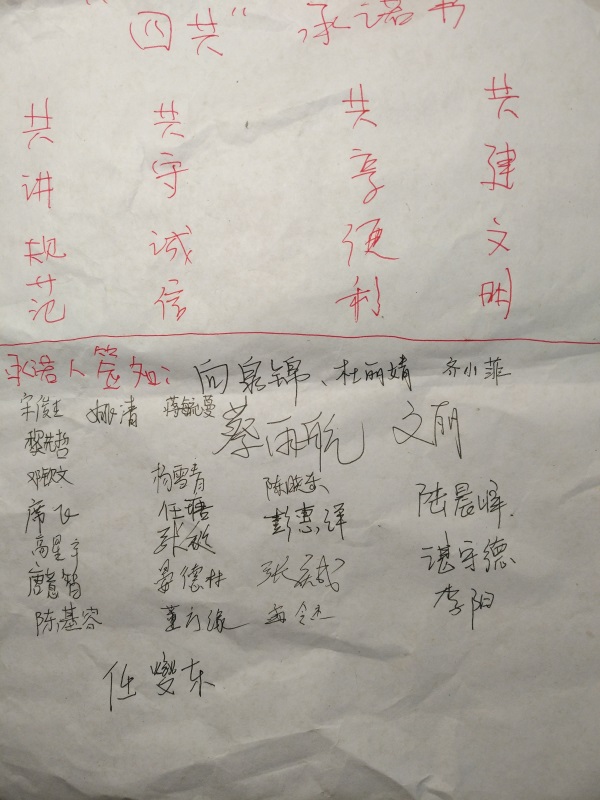 “四共”承诺书
共讲规范
共守诚信
共享便利
共建文明
承诺人签如：向泉锦、杜丽婧 齐小菲
宇俊生 姚清 蒋毓蔓
蔡雨航 文丽
黎先哲
邓钦文 杨雪青 陈晓东
席飞 任瑭 彭惠祥 陆晨峰
高星宇 张放
唐意智 晏德林 张斌 谌守德
陈基容 董方缘 李阳
任燮东